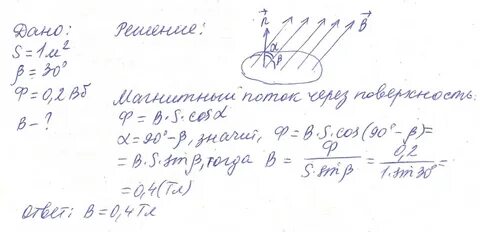 Дано:
S = 1 м²
β = 30°
Ф = 0,2 Вб
В – ?
Решение:
n⃗ B⃗
α β
Магнитный поток через поверхность:
Ф = B·S·cosα
α = 90° – β, значит, Ф = B·S·cos(90° – β) =
= B·S·sinβ, тогда B = Ф / S·sinβ = 0,2 / 1·sin30° =
= 0,4 (Тл)
Ответ: В = 0,4 Тл